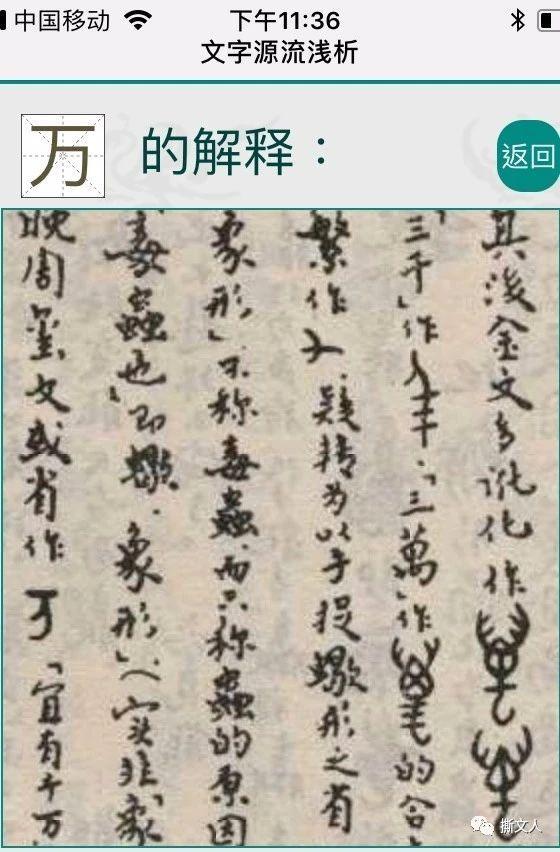 中国移动 下午11:36
文字源流浅析
万 的解释：
返回
其後金文多訛化作
三千」作 、「三萬」作 的合
繁作 ，疑轉为以手捉蠍形之省
象形」。不称毒蟲，而只称蟲的原因
毒蟲也」即蠍。象形」（实非「象
晚周金文或省作丂「宜有千万
撕文人